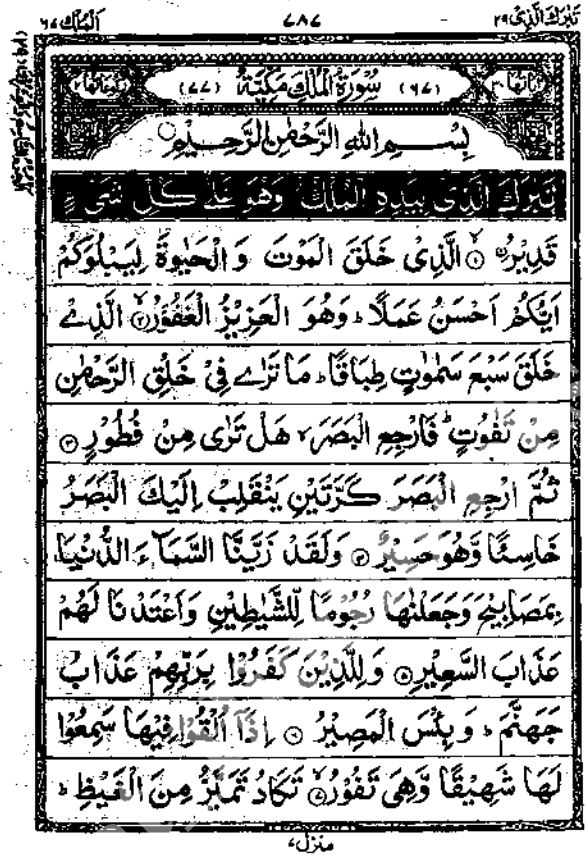 تَبٰرَكَ الَّذِیْ ٢٩
٧٨٧
اَلْمُلْك ٦٧
اٰیَاتُهَا ٣٠
(٦٧) سُوْرَةُ الْمُلْكِ مَكِّیَّةٌ (٧٧)
رُكُوْعَاتُهَا ٢
بِسْـــمِ اللهِ الرَّحْمٰنِ الرَّحِـــیْمِ
تَبٰرَكَ الَّذِیْ بِیَدِهِ الْمُلْكُ وَهُوَ عَلٰی كُلِّ شَیْءٍ
قَدِیْرُۨ ۙ﴿١﴾ الَّذِیْ خَلَقَ الْمَوْتَ وَ الْحَیٰوةَ لِیَبْلُوَكُمْ
اَیُّكُمْ اَحْسَنُ عَمَلًا ؕ وَهُوَ الْعَزِیْزُ الْغَفُوْرُ ۙ﴿٢﴾ الَّذِیْ
خَلَقَ سَبْعَ سَمٰوٰتٍ طِبَاقًا ؕ مَا تَرٰی فِیْ خَلْقِ الرَّحْمٰنِ
مِنْ تَفٰوُتٍ ؕ فَارْجِعِ الْبَصَرَ ۙ هَلْ تَرٰی مِنْ فُطُوْرٍ ﴿٣﴾
ثُمَّ ارْجِعِ الْبَصَرَ كَرَّتَیْنِ یَنْقَلِبْ اِلَیْكَ الْبَصَرُ
خَاسِئًا وَّهُوَ حَسِیْرٌ ﴿٤﴾ وَلَقَدْ زَیَّنَّا السَّمَآءَ الدُّنْیَا
بِمَصَابِیْحَ وَجَعَلْنٰهَا رُجُوْمًا لِّلشَّیٰطِیْنِ وَاَعْتَدْنَا لَهُمْ
عَذَابَ السَّعِیْرِ ﴿٥﴾ وَلِلَّذِیْنَ كَفَرُوْا بِرَبِّهِمْ عَذَابُ
جَهَنَّمَ ؕ وَبِئْسَ الْمَصِیْرُ ﴿٦﴾ اِذَاۤ اُلْقُوْا فِیْهَا سَمِعُوْا
لَهَا شَهِیْقًا وَّهِیَ تَفُوْرُ ۙ﴿٧﴾ تَكَادُ تَمَیَّزُ مِنَ الْغَیْظِ ؕ
منزل ٧